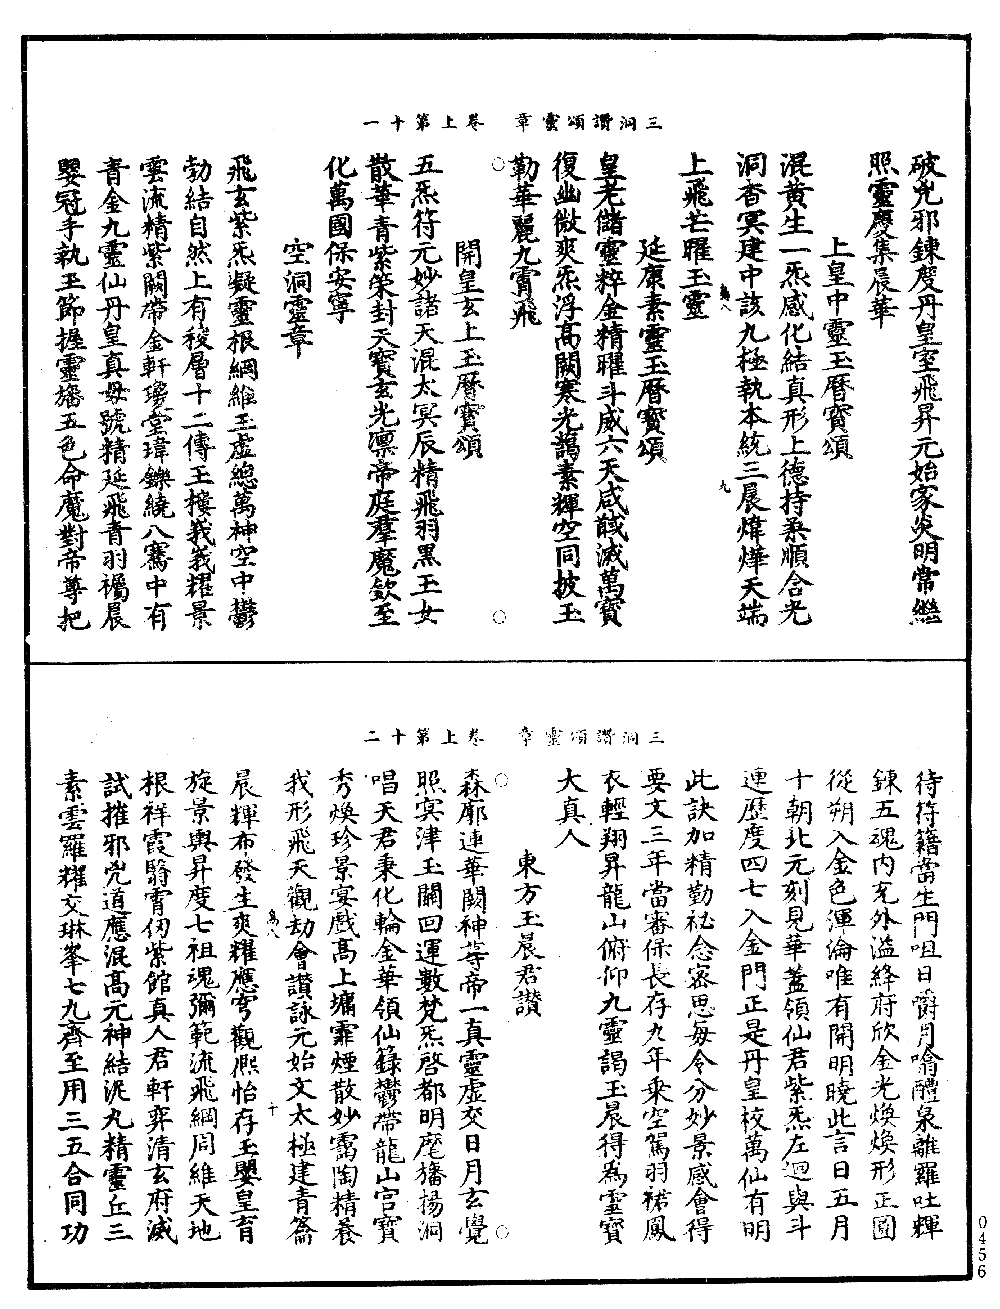 三洞讚頌靈章　卷上第十一
破兇邪鍊度丹皇室飛昇元始家炎明常繼
照靈慶集晨華
上皇中靈玉曆寶頌
混黄生一炁感化結真形上德持柔順含光
洞杳冥建中該九極執本統三晨煒燁天端
上飛芒曜玉靈
延康素靈玉曆寶頌
皇老儲靈粹金精曜斗威六天咸馘滅萬寶
復幽微爽炁浮高闕寒光藹素輝空同披玉
勒華麗九霄飛
開皇玄上玉曆寶頌
五炁符元妙諸天混太冥辰精飛羽黑玉女
散華青紫榮封天寶玄光凛帝庭羣魔欽至
化萬國保安寧
空洞靈章
飛玄紫炁凝靈根綱維玉虛總萬神空中鬱
勃結自然上有稜層十二傳玉樓峩峩耀景
雲流精紫闕帶金軒瓊堂瑋鑠繞八騫中有
青金九靈仙丹皇真母號精延飛青羽襡晨
嬰冠手執玉節握靈旛五色命魔對帝尊把
三洞讚頌靈章　卷上第十二
待符籍當生門咀日嚼月噏醴泉離羅吐輝
鍊五魂内充外溢絳府欣金光煥煥形正圓
從朔入金色渾倫唯有開明曉此言日五月
十朝北元刻見華蓋領仙君紫炁左迴與斗
連歷度四七入金門正是丹皇校萬仙有明
此訣加精勤祕念密思每令分妙景感會得
要文三年當審保長存九年乗空駕羽裙鳳
衣輕翔昇龍山俯仰九靈謁玉晨得為靈寶
大真人
東方玉晨君讚
森廓連華闕神等帝一真靈虛交日月玄覺
照冥津玉關回運數梵炁啓都明麾旛揚洞
唱天君秉化輪金華領仙籙鬱帶龍山宫寶
秀煥珍景宴戲高上墉霏煙散妙靄陶精養
我形飛天觀劫會讚詠元始文太極建青籥
晨輝布發生爽耀應穹觀熈怡存玉嬰皇育
旋景輿昇度七祖魂彌範流飛綱周維天地
根祥霞翳霄仞紫館真人君軒弈清玄府滅
試摧邪兇道應混高元神結泥丸精靈丘三
素雲羅耀交琳峯七九齊至用三五合同功
0456